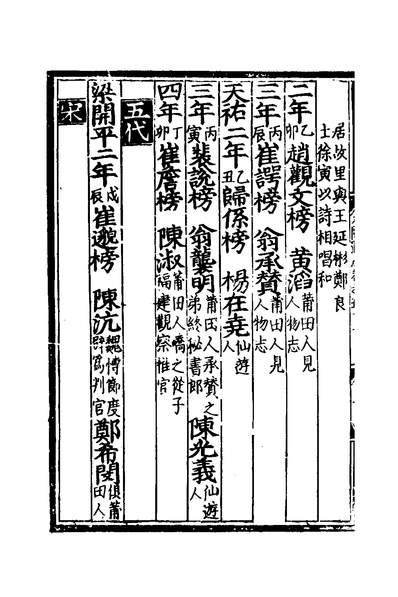 居故里與王延彬鄭良
士徐寅以詩相唱和
二年乙卯趙觀文榜 黃滔莆田人見人物志
三年丙辰崔諤榜 翁承贊莆田人見人物志
天祐二年乙丑歸係榜 楊在堯仙遊人
三年丙寅裴說榜 翁襲明莆田人承贊之弟終秘書郎 陳光義仙遊人
四年丁卯崔詹榜 陳淑莆田人嶠之從子福建觀察推官
五代
梁開平二年戊辰崔邈榜 陳沆魏博節度辟為判官 鄭希閔偵莆田人
宋